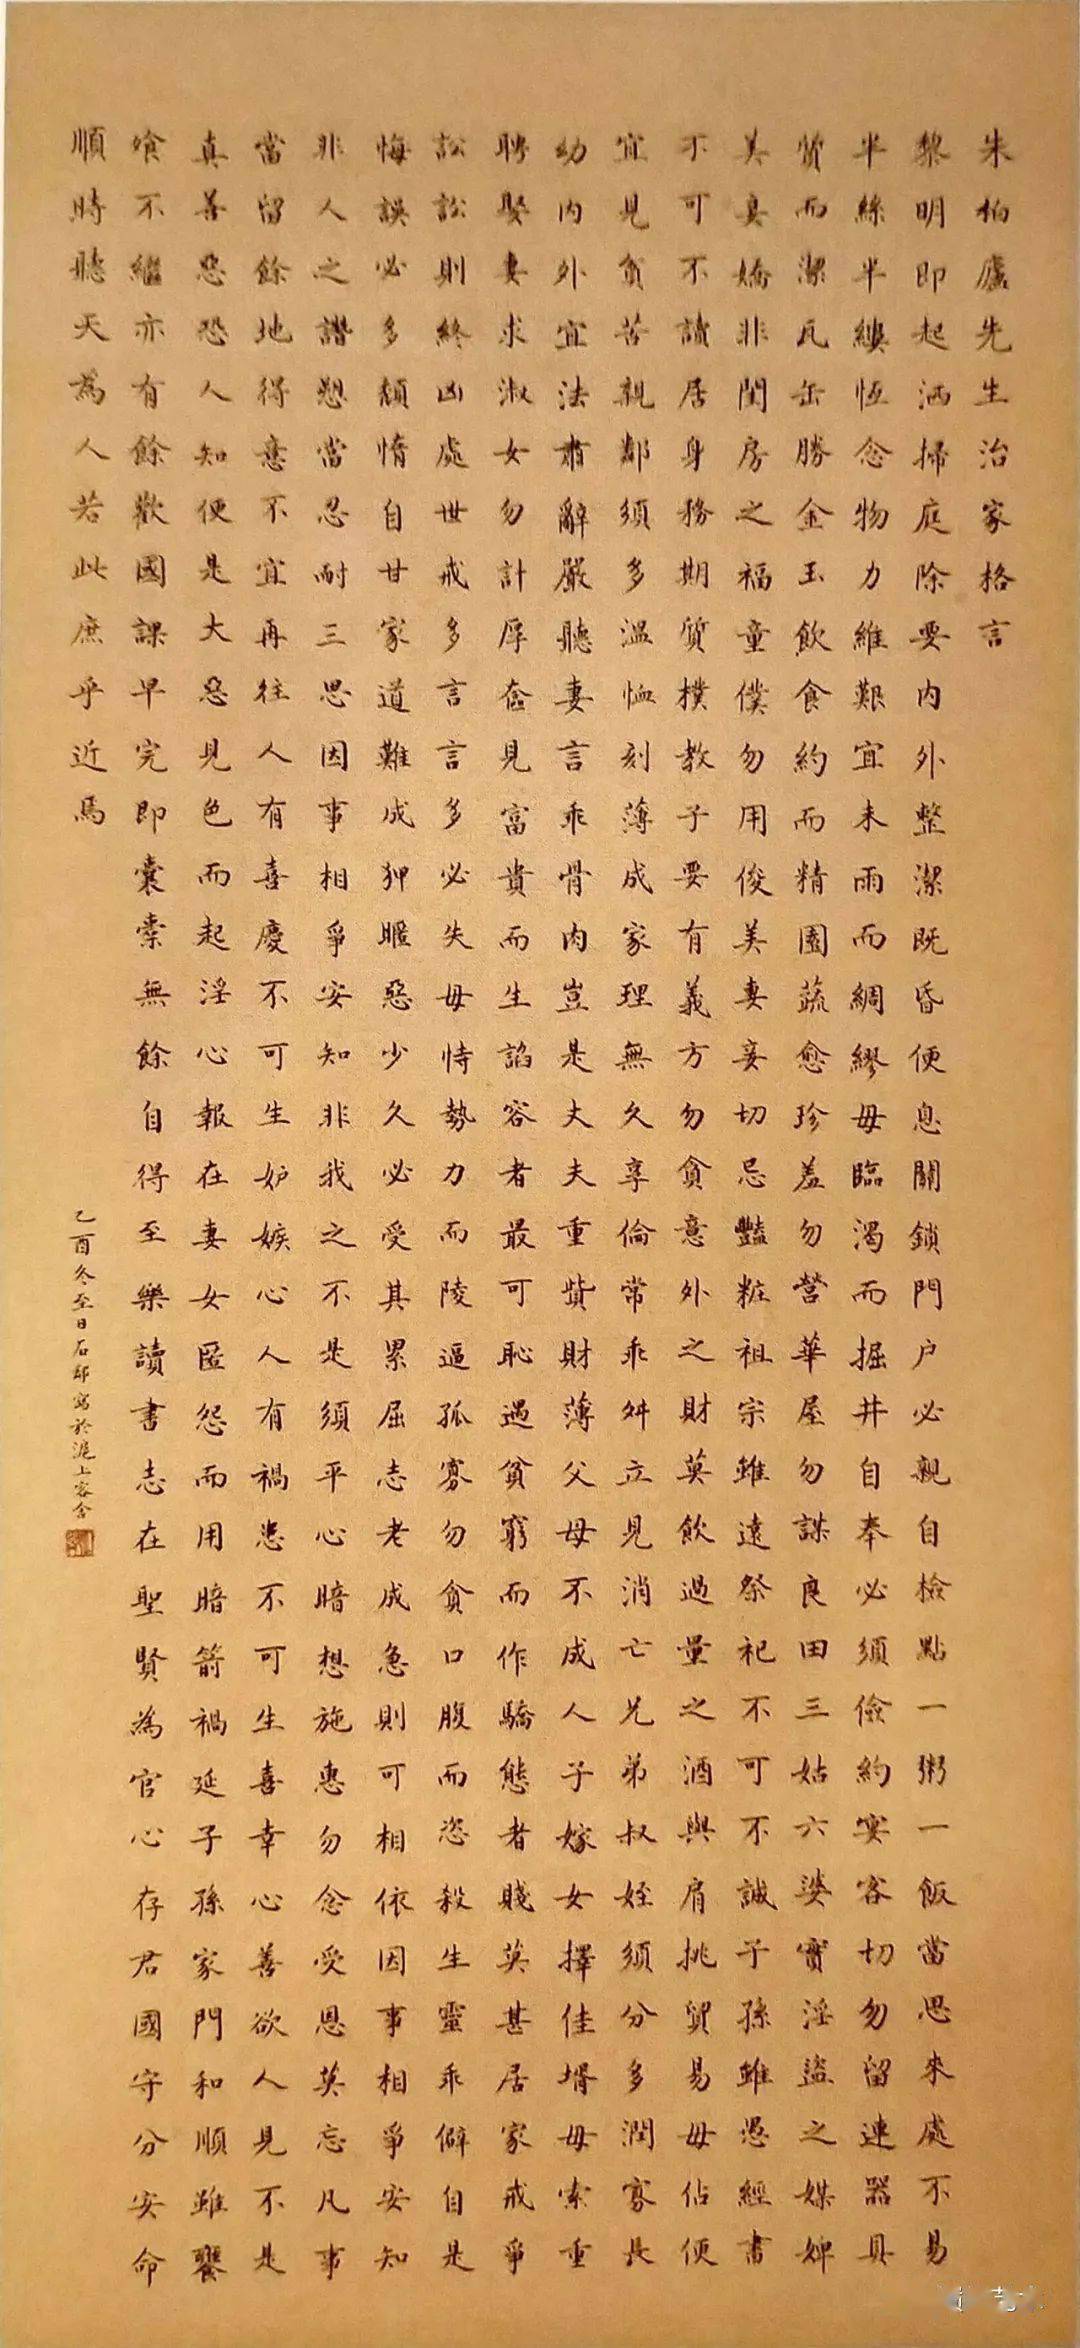 朱柏廬先生治家格言
黎明即起洒掃庭除要內外整潔既昏便息關鎖門户必親自檢點一粥一飯當思來處不易
半絲半縷恆念物力維艱宜未雨而綢繆毋臨渴而掘井自奉必須儉約宴客切勿留連器具
質而潔瓦缶勝金玉飲食約而精園蔬愈珍羞勿營華屋勿謀良田三姑六婆實淫盜之媒婢
美妾嬌非閨房之福童僕勿用俊美妻妾切忌豔粧祖宗雖遠祭祀不可不誠子孫雖愚經書
不可不讀居身務期質樸教子要有義方勿貪意外之財莫飲過量之酒與肩挑貿易毋佔便
宜見貧苦親鄰須多溫恤刻薄成家理無久享倫常乖舛立見消亡兄弟叔姪須分多潤寡長
幼內外宜法肅辭嚴聽妻言乖骨肉豈是丈夫重貲財薄父母不成人子嫁女擇佳壻毋索重
聘娶妻求淑女勿計厚奩見富貴而生諂容者最可恥遇貧窮而作驕態者賤莫甚居家戒爭
訟訟則終凶處世戒多言言多必失毋恃勢力而陵逼孤寡勿貪口腹而恣殺生靈乖僻自是
悔誤必多頹惰自甘家道難成狎暱惡少久必受其累屈志老成急則可相依因事相爭安知
非人之譖愬當忍耐三思因事相爭安知非我之不是須平心暗想施惠勿念受恩莫忘凡事
當留餘地得意不宜再往人有喜慶不可生妒嫉心人有禍患不可生喜幸心善欲人見不是
真善惡恐人知便是大惡見色而起淫心報在妻女匿怨而用暗箭禍延子孫家門和順雖饔
飧不繼亦有餘歡國課早完即囊橐無餘自得至樂讀書志在聖賢為官心存君國守分安命
順時聽天為人若此庶乎近焉
乙酉冬至日石邨寫於滬上容舍